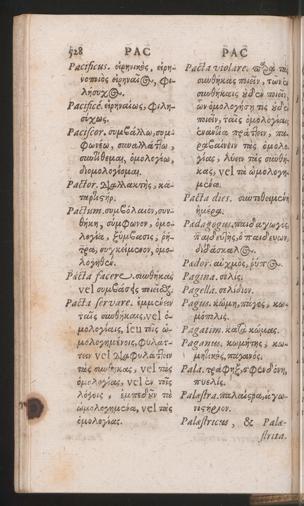 528 PAC
Pacificus. εἰρηνικὸς, εἰρη-
νοποιὸς εἰρηναῖος, φι-
λήσυχος.
Pacificè. εἰρηναίως, φιλη-
σύχως.
Paciscor. συμβάλλω, συμ-
φωνέω, συναλλάττω,
συντίθεμαι, ὁμολογέω,
διομολογίομαι.
Pactor. διαλλακτὴς, κα-
Pactum. συμβόλαιον, συν-
θήκη, σύμφωνον, ὁμο-
λογία, ξύμβασις, ῥή-
τρα, συγκείμενον, ὁμο-
λογηθέν.
Pacta facere. συνθήκας
vel συμβάσεις
Pacta servare. ἐμμένειν
ταῖς συνθήκαις, vel ὁ-
μολογίαις, seu τοῖς ὡ-
μολογημένοις, φυλάτ-
τειν vel διαφυλάττειν
τὰς συνθήκας, vel τὰς
ὁμολογίας, vel ἐν τοῖς
λόγοις, ἐμπεδοῦν τὰ
ὡμολογημένα, vel τὰς
ὁμολογίας.
PAC
Pacta violare. παρὰ τὰς
συνθήκας ποιεῖν, ταῖς
συνθήκαις ἐδὲν ποιεῖν,
ὧν ὁμολόγησέ τις ἐδὲν
ποιεῖν, ταῖς ὁμολογίαις
ἐναντία πράττειν, πα-
ραβαίνειν τὰς ὁμολο-
γίας, λύειν τὰς συνθή-
κας, vel τὰ ὡμολογη-
μένα.
Pacta dies. συντιθεμένη
ἡμέρα.
Pædagogus. παιδαγωγὸς
διδάσκαλος.
Pædor. αὐχμὸς, ῥύπος.
Pagina. σελίς.
Pagella. σελίδιον.
Pagus. κώμη, πάγος, κω-
μόπολις.
Pagatim. κατὰ κώμας.
Paganus. κωμήτης, κω-
μητικὸς, παγανός.
Pala.
πυελίς.
Palæstra. παλαίστρα, ἀγω-
νιστήριον.
Palæstricus, & Palæ-
strita.